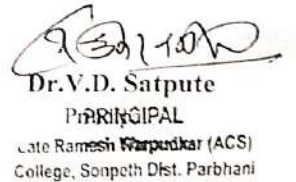 Dr.V.D. Satpute
PRINCIPAL
Late Ramesh Warpudkar (ACS)
College, Sonpeth Dist. Parbhani